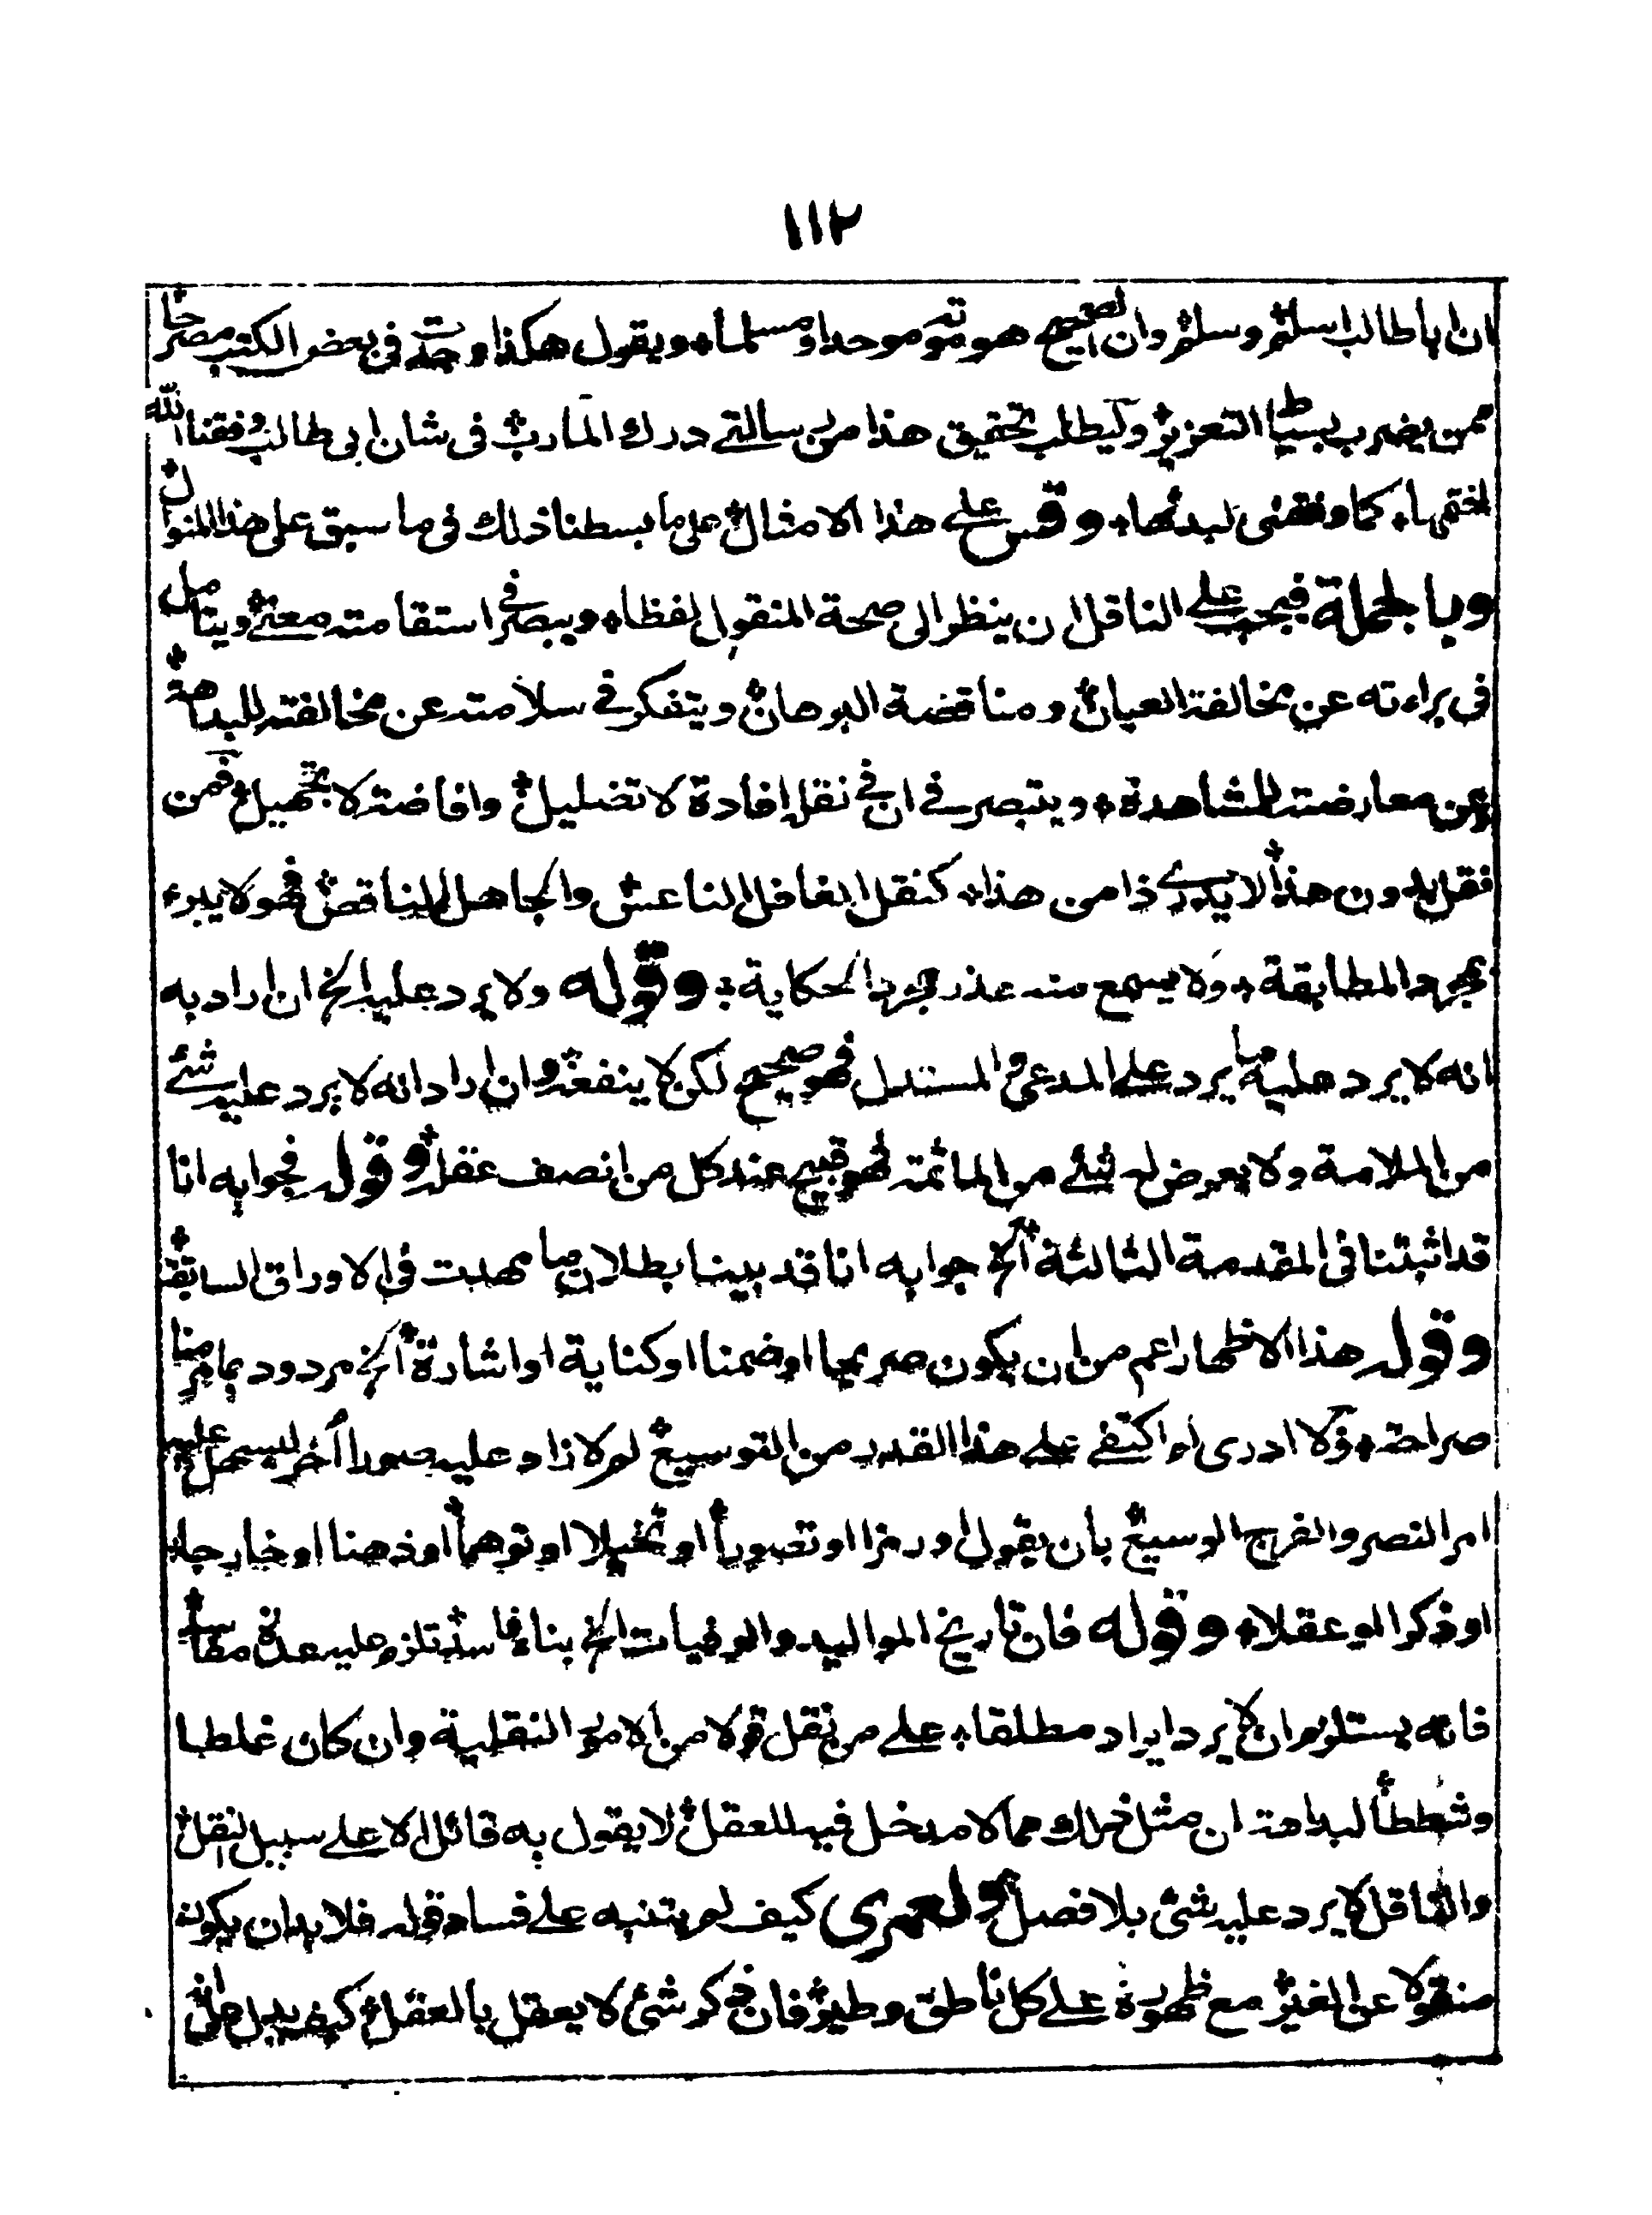 ١١٢
ان ابا طالب اسلم وسلم وان الصحيح هو موته موحدا ومسلما ويقول هكذا وجدت في بعض الكتب مصرحا
ممن يضرب بسياط التعزير وليطلب تحقيق هذا من رسالتي درك المآرب في شان ابي طالب وفقنا الله
لختمها كما وفقني لبدئها وقس على هذا الامثال على ما بسطنا ذلك في ما سبق على هذا المنوال
وبالجملة فيجب على الناقل ان ينظر الى صحة المنقول لفظا ويبصر في استقامته معنى ويتامل
في براءته عن مخالفة العيان ومناقضة البرهان ويتفكر في سلامته عن مخالفته للبداهة
وعن معارضته للمشاهدة ويتبصر في ان في نقله افادة لا تضليل وافاضة لا تجهيل فمن
نقل بدون هذا لا يدرى ذا من هذا كنقل الغافل الناعس والجاهل المناقض فهو لا يبرء
بمجرد المطابقة ولا يسمع منه عذر مجرد الحكاية وقوله ولا يرد عليه الخ ان اراد به
انه لا يرد عليه ما يرد على المدعي والمستدل فهو صحيح لكن لا ينفعه وان اراد انه لا يرد عليه شئ
من الملامة ولا يعرض له شئ من الماثمة فهو قبيح عند كل من انصف عقله وقوله فجوابه انا
قد اثبتنا في المقدمة الثالثة الخ جوابه انا قد بينا بطلان ما مهدت في الاوراق السابقة
وقوله هذا الاظهار اعم من ان يكون صريحا او ضمنا او كناية او اشارة الخ مردود بما مر منا
صراحة ولا ادرى لم اكتفى على هذا القدر من التوسيع لم لا زاد عليه صورا أخر ليسهل عليه
امر النصر والفرج الوسيع بان يقول او رمزا او تصورا او تخيلا او توهما او ذهنا او خارجا
او ذكرا او عقلا وقوله فان تاريخ المواليد والوفيات الخ بناء فاسد تلزم عليه عدة مفاسد
فانه يستلزم ان لا يرد ايراد مطلقا على من نقل قولا من الامور النقلية وان كان غلطا
وشططا لبداهة ان مثل ذلك مما لا مدخل فيه للعقل لا يقول به قائل الا على سبيل النقل
والناقل لا يرد عليه شئ بلا فصل ولعمرى كيف لم يتنبه على فساد قوله فلا بد ان يكون
منقولا عن الغير مع ظهوره على كل ناطق وطير فان ذكر شئ لا يعقل بالعقل كيف يدل على